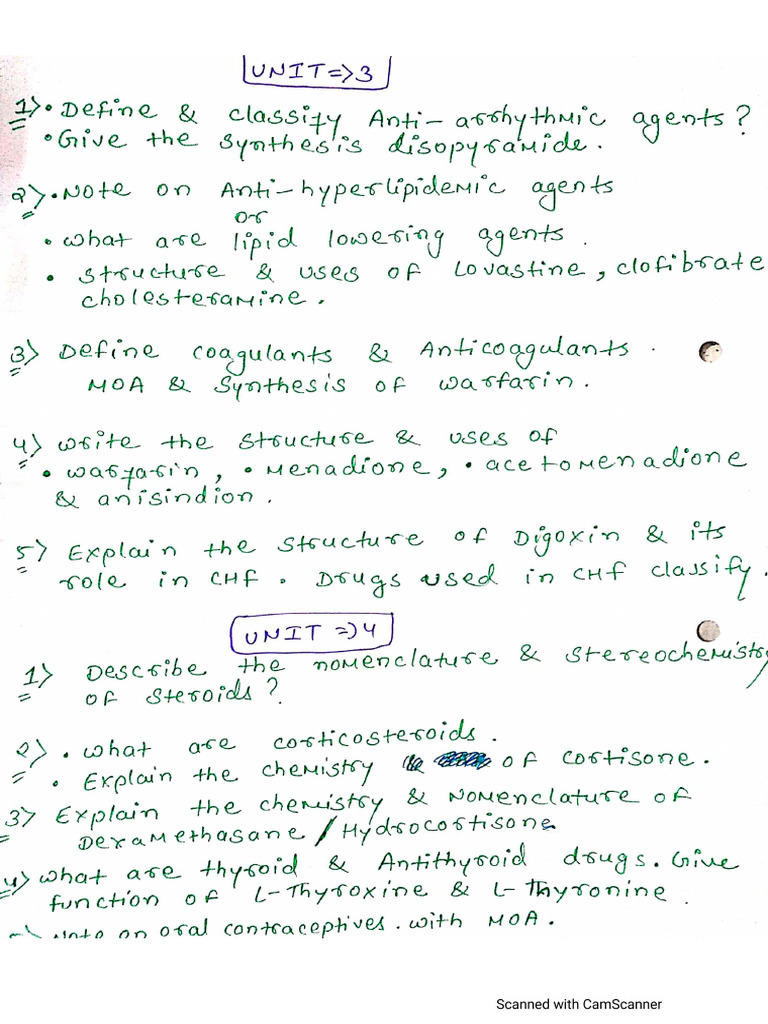 UNIT => 3
1) • Define & classify Anti-arrhythmic agents?
• Give the synthesis disopyramide.
2) • Note on Anti-hyperlipidemic agents
or
• what are lipid lowering agents.
• structure & uses of Lovastine, clofibrate
cholesteramine.
3) Define coagulants & Anticoagulants.
MOA & synthesis of warfarin.
4) write the structure & uses of
• warfarin, • menadione, • acetomenadione
& anisindion.
5) Explain the structure of Digoxin & its
role in CHF. Drugs used in CHF classify.
UNIT => 4
1) Describe the nomenclature & stereochemistry
of steroids?
2) • what are corticosteroids.
• Explain the chemistry & of cortisone.
3) Explain the chemistry & Nomenclature of
Dexamethasane / Hydrocortisone
4) what are thyroid & Antithyroid drugs. Give
function of L-Thyroxine & L-Thyronine.
Note on oral contraceptives. with MOA.
Scanned with CamScanner